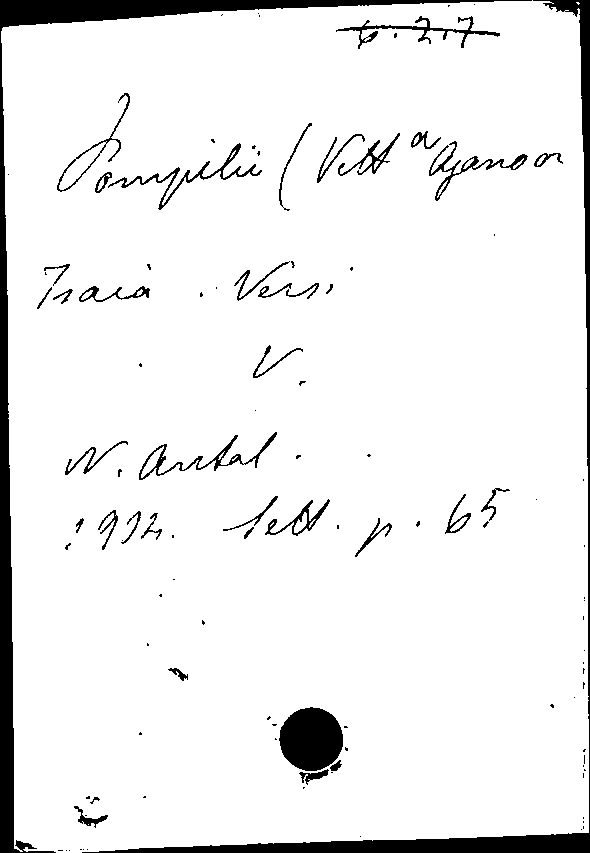 6.2.7
Pompilii (Vitt.a Aganoor
Isaia. Versi
V.
N. Antol.
1912. Sett. p. 65